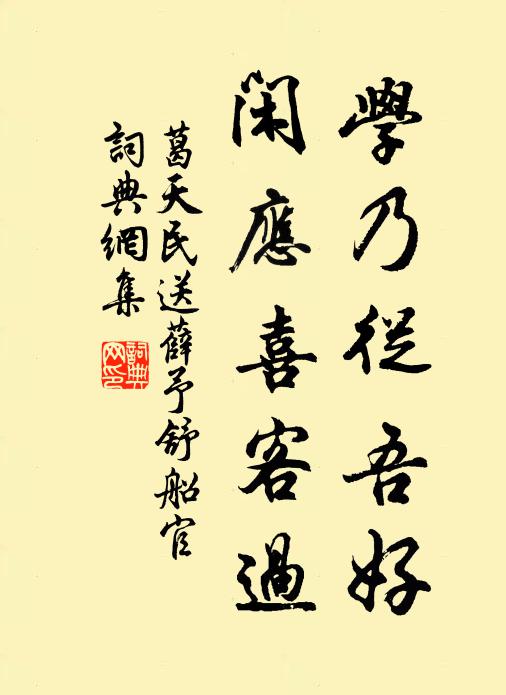 學乃從吾好
閑應喜客過
葛天民送薛予舒船官
詞典網集
詞典網印